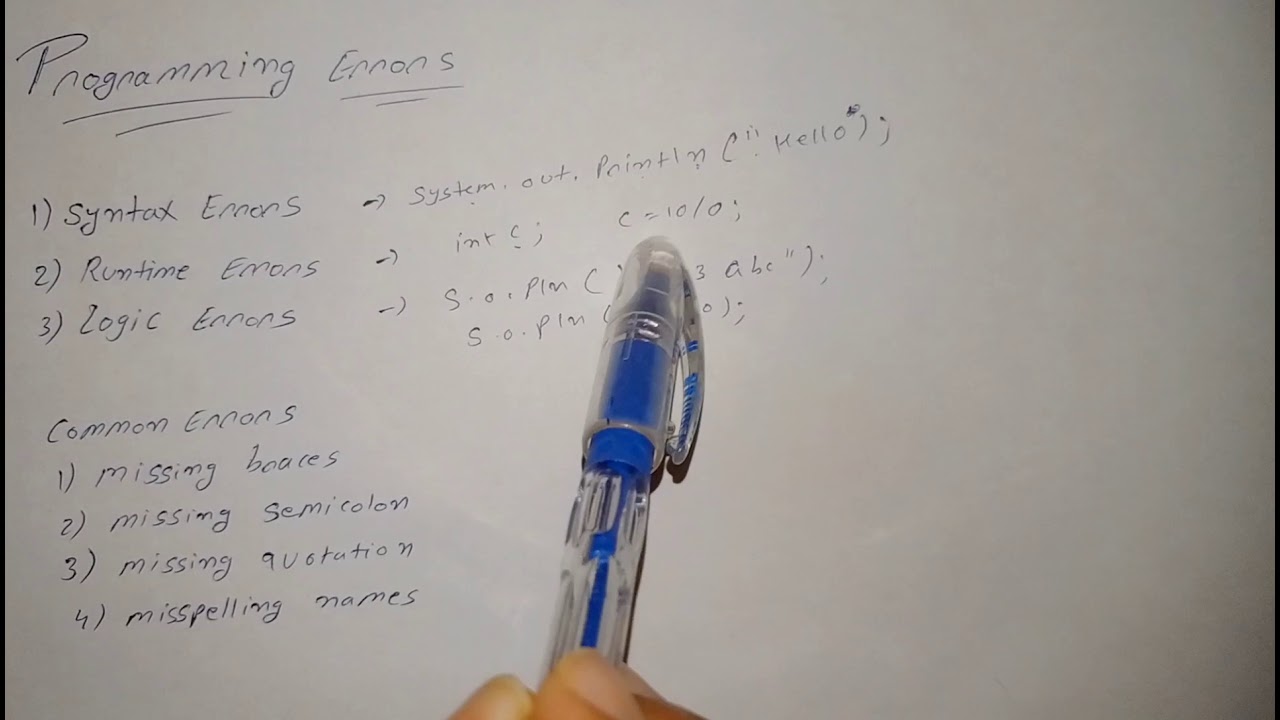 Programming Errors
1) Syntax Errors -> System.out.Println("Hello");
2) Runtime Errors -> int c; c=10/0;
3) Logic Errors -> S.o.Pln( 3 abc");
S.o.Pln( 0);
Common Errors
1) missing braces
2) missing semicolon
3) missing quotation
4) misspelling names